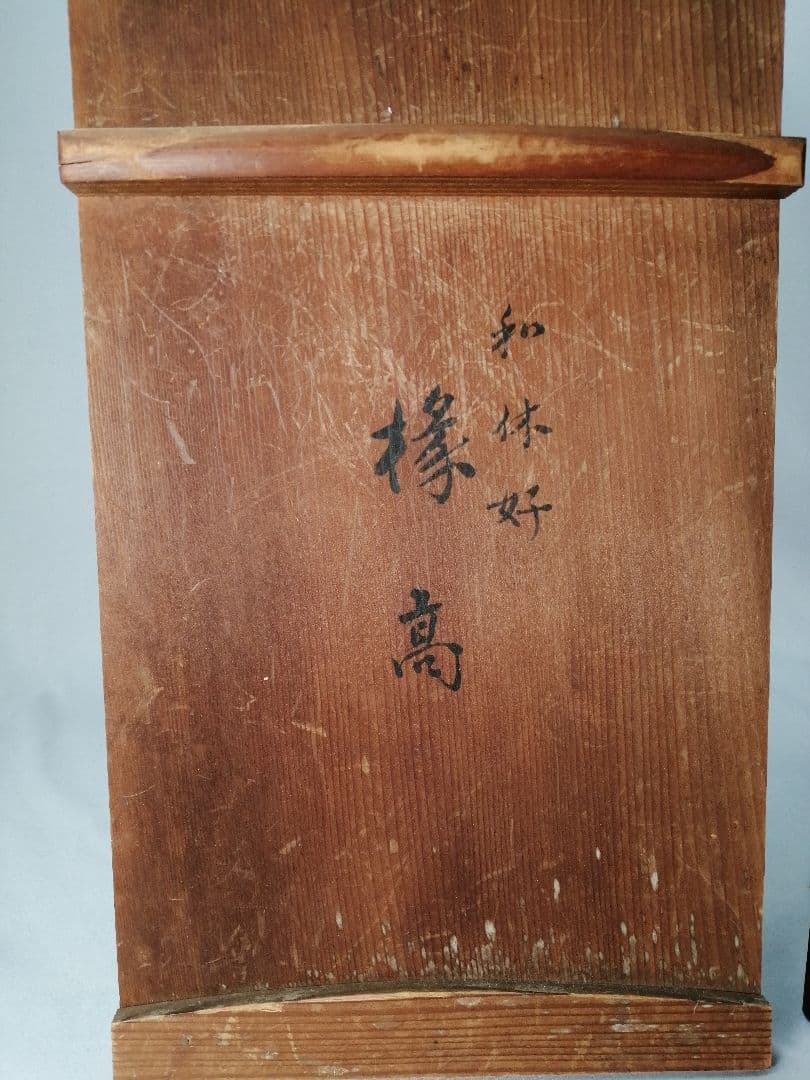 利休好
椽高